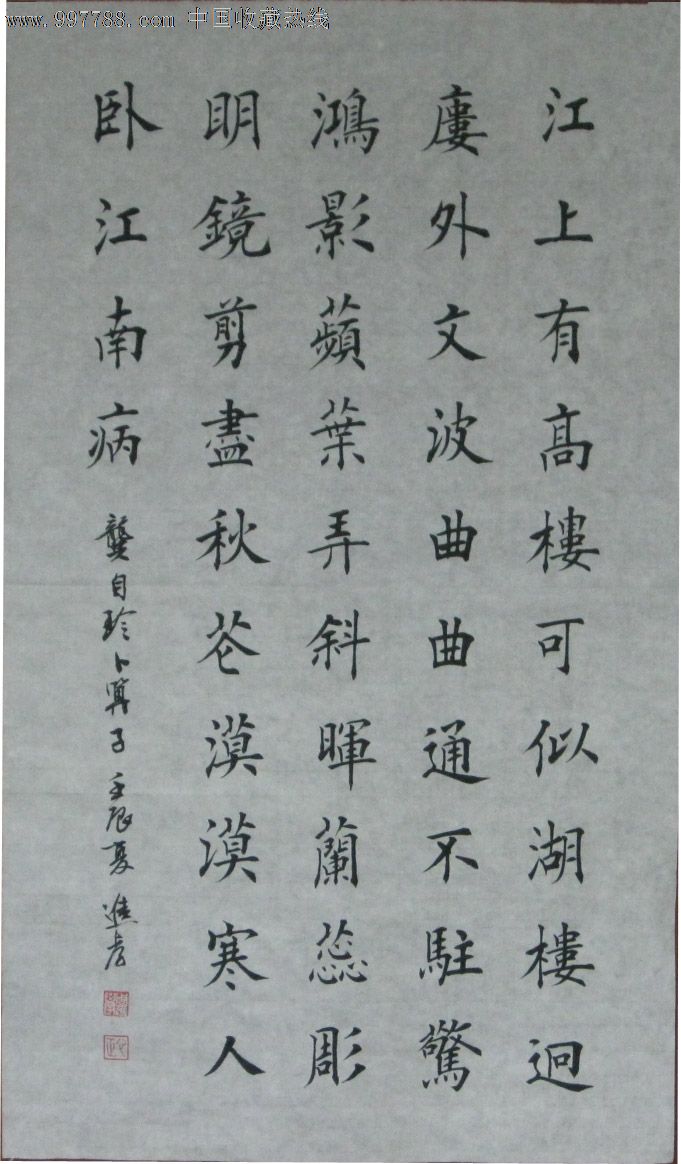 www.997788.com 中国收藏热线
江上有高樓可似湖樓迥
廔外文波曲曲通不駐驚
鴻影蘋葉弄斜暉蘭蕊彫
明鏡剪盡秋花漠漠寒人
臥江南病
龔自珍卜算子壬辰夏進考